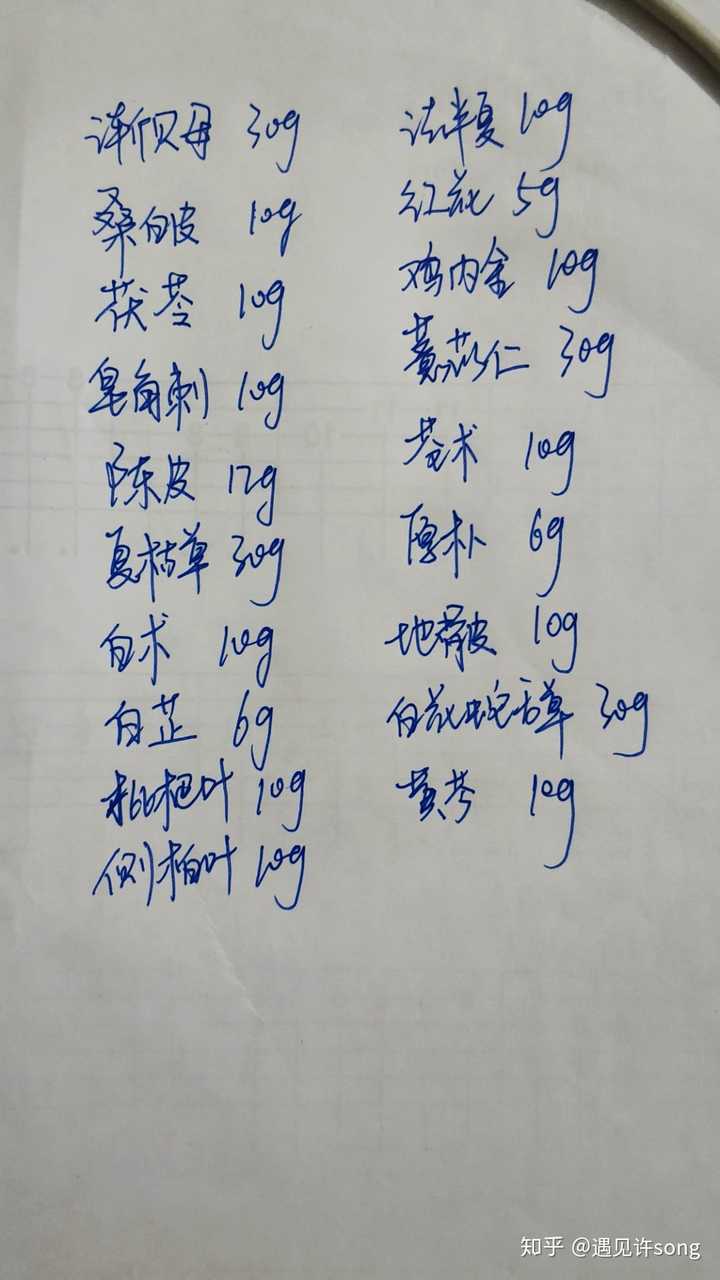 浙贝母 30g
桑白皮 10g
茯苓 10g
皂角刺 10g
陈皮 12g
夏枯草 30g
白术 10g
白芷 6g
枇杷叶 10g
侧柏叶 10g
法半夏 10g
红花 5g
鸡内金 10g
薏苡仁 30g
苍术 10g
厚朴 6g
地骨皮 10g
白花蛇舌草 30g
黄芩 10g
知乎 @遇见许song